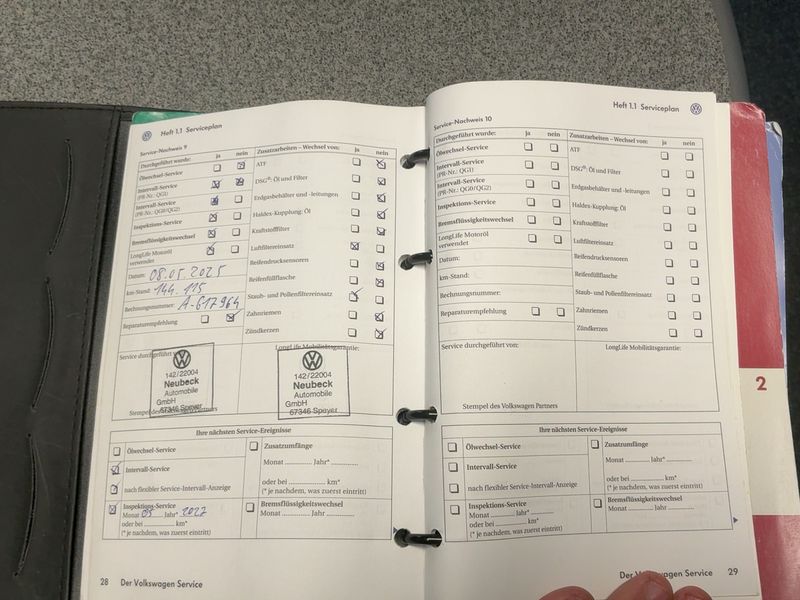 Heft 1.1 Serviceplan
Service-Nachweis 9
Durchgeführt wurde: ja nein
Ölwechsel-Service
Intervall-Service
(PR-Nr.: QG1)
Intervall-Service
(PR-Nr.: QG0/QG2)
Inspektions-Service
Bremsflüssigkeitswechsel
LongLife Motoröl
verwendet
Datum: 08.05.2025
km-Stand: 144.115
Rechnungsnummer: A-617964
Reparaturempfehlung
Zusatzarbeiten – Wechsel von: ja nein
ATF
DSG®: Öl und Filter
Erdgasbehälter und -leitungen
Haldex-Kupplung: Öl
Kraftstofffilter
Luftfiltereinsatz
Reifendrucksensoren
Reifenfüllflasche
Staub- und Pollenfiltereinsatz
Zahnriemen
Zündkerzen
Service durchgeführt von:
142/22004
Neubeck
Automobile
GmbH
67346 Speyer
Stempel des Volkswagen Partners
LongLife Mobilitätsgarantie:
142/22004
Neubeck
Automobile
GmbH
67346 Speyer
Ihre nächsten Service-Ereignisse
Ölwechsel-Service
Intervall-Service
nach flexibler Service-Intervall-Anzeige
Inspektions-Service
Monat 05 Jahr* 2027
oder bei ............ km*
(* je nachdem, was zuerst eintritt)
Zusatzumfänge
Monat ............ Jahr* ............
oder bei ............ km*
(* je nachdem, was zuerst eintritt)
Bremsflüssigkeitswechsel
Monat ............ Jahr ............
28 Der Volkswagen Service
Heft 1.1 Serviceplan
Service-Nachweis 10
Durchgeführt wurde: ja nein
Ölwechsel-Service
Intervall-Service
(PR-Nr.: QG1)
Intervall-Service
(PR-Nr.: QG0/QG2)
Inspektions-Service
Bremsflüssigkeitswechsel
LongLife Motoröl
verwendet
Datum:
km-Stand:
Rechnungsnummer:
Reparaturempfehlung
Zusatzarbeiten – Wechsel von: ja nein
ATF
DSG®: Öl und Filter
Erdgasbehälter und -leitungen
Haldex-Kupplung: Öl
Kraftstofffilter
Luftfiltereinsatz
Reifendrucksensoren
Reifenfüllflasche
Staub- und Pollenfiltereinsatz
Zahnriemen
Zündkerzen
Service durchgeführt von:
Stempel des Volkswagen Partners
LongLife Mobilitätsgarantie:
Ihre nächsten Service-Ereignisse
Ölwechsel-Service
Intervall-Service
nach flexibler Service-Intervall-Anzeige
Inspektions-Service
Monat ............ Jahr* ............
oder bei ............ km*
(* je nachdem, was zuerst eintritt)
Zusatzumfänge
Monat ............ Jahr* ............
oder bei ............ km*
(* je nachdem, was zuerst eintritt)
Bremsflüssigkeitswechsel
Monat ............ Jahr ............
Service 29
2